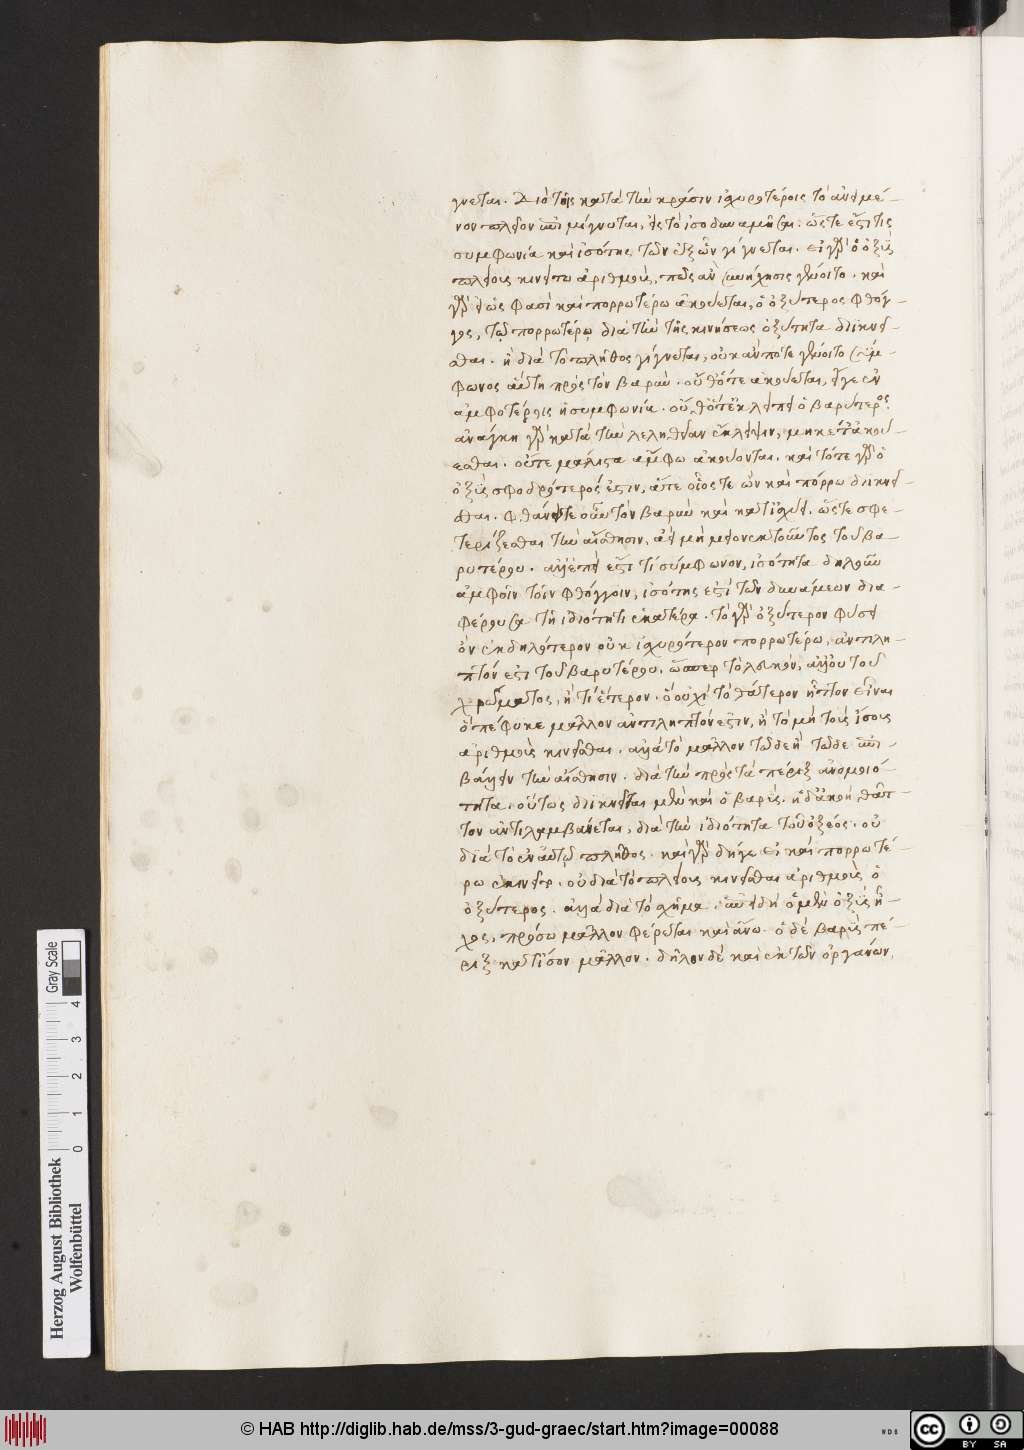 γνεται. Διὸ τοῖς κατὰ τὴν κρᾶσιν ἰσχυροτέροις τὸ ἀνειμέ-
νον πλεῖον ἐπιμίγνυται, εἰς τὸ ἰσοδυναμῆσαι: ὥστε ἔστι τις
συμφωνία καὶ ἰσότης τῶν ἐξ ὧν γίγνεται. εἰ γὰρ ὁ ὀξὺς
πλείους κινεῖται ἀριθμοὺς, πῶς ἂν συνήχησις γένοιτο. καὶ
γὰρ εἰ ὥς φασὶ καὶ πορρωτέρω ἀκούεται, ὁ ὀξύτερος φθόγ-
γος, τῷ πορρωτέρω διὰ τὴν τῆς κινήσεως ὀξύτητα διικνεῖ-
σθαι. ἢ διὰ τὸ πλῆθος γίγνεται, οὐκ ἄν ποτε γένοιτο σύμ-
φωνος αὐτὴ πρὸς τὸν βαρὺν. οὔθ᾽ ὅτε ἀκούεται, εἴγε ἐν
ἀμφοτέροις ἡ συμφωνία. οὔθ᾽ ὅτε ἐκλείπει ὁ βαρύτερος.
ἀνάγκη γὰρ κατὰ τὴν ἔκλειψιν, μηκέτ᾽ ἀκού-
εσθαι. οὔτε μάλιστα ἄμφω ἀκούονται. καὶ τότε γὰρ ὁ
ὀξὺς σφοδρότερός ἐστιν, ἅτε οἷός τε ὢν καὶ πόρρω διικνεῖ-
σθαι. φθάνει τε οὖν τὸν βαρὺν καὶ κατισχύει. ὥστε σφε-
τερίζεσθαι τὴν αἴσθησιν, τοῦ βα-
ρυτέρου. ἀλλ᾽ ἐπεὶ ἔστι τί σύμφωνον, ἰσότητα δηλοῦν
ἀμφοῖν τοῖν φθόγγοιν, ἰσότης ἐστὶ τῶν δυνάμεων δια-
φέρουσα τῇ ἰδιότητι ἑκατέρα. τὸ γὰρ ὀξύτερον φύσει
ὂν ἐκδηλότερον οὐκ ἰσχυρότερον πορρωτέρω, ἀντιλη-
πτόν ἐστι τοῦ βαρυτέρου. ὥσπερ τὸ λευκὸν, ἄλλου του
χρώματος, ἢ τί ἕτερον. ὃ οὐχὶ τὸ θάτερον ἧττον εἶναι
ὃ πέφυκε μᾶλλον ἀντιληπτόν ἐστιν, ἢ τὸ μὴ τοὺς ἴσους
ἀριθμοὺς κινεῖσθαι. ἀλλὰ τὸ μᾶλλον τῷδε ἢ τῷδε ἐπι-
βάλλειν τὴν αἴσθησιν. διὰ τὴν πρὸς τὰ πέριξ ἀνομοιό-
τητα. οὕτως διικνεῖται μὲν καὶ ὁ βαρύς. ἡ δ᾽ ἀκοὴ θᾶτ-
τον ἀντιλαμβάνεται, διὰ τὴν ἰδιότητα τοῦ ὀξέος. οὐ
διὰ τὸ ἐν αὐτῷ πλῆθος. καὶ γὰρ δήγε εἰ καὶ πορρωτέ-
ρω . οὐ διὰ τὸ πλείους κινεῖσθαι ἀριθμοὺς ὁ
ὀξύτερος. ἀλλὰ διὰ τὸ σχῆμα. ἐπειδὴ ὁ μὲν ὀξὺς ἦ-
χος, πρόσω μᾶλλον φέρεται καὶ ἄνω. ὁ δὲ βαρὺς πέ-
ριξ κατ᾽ ἴσον μᾶλλον. δῆλον δὲ καὶ ἐκ τῶν ὀργάνων.
Herzog August Bibliothek
Wolfenbüttel
0 1 2 3 4
Gray Scale
© HAB http://diglib.hab.de/mss/3-gud-graec/start.htm?image=00088
WDB
cc BY SA